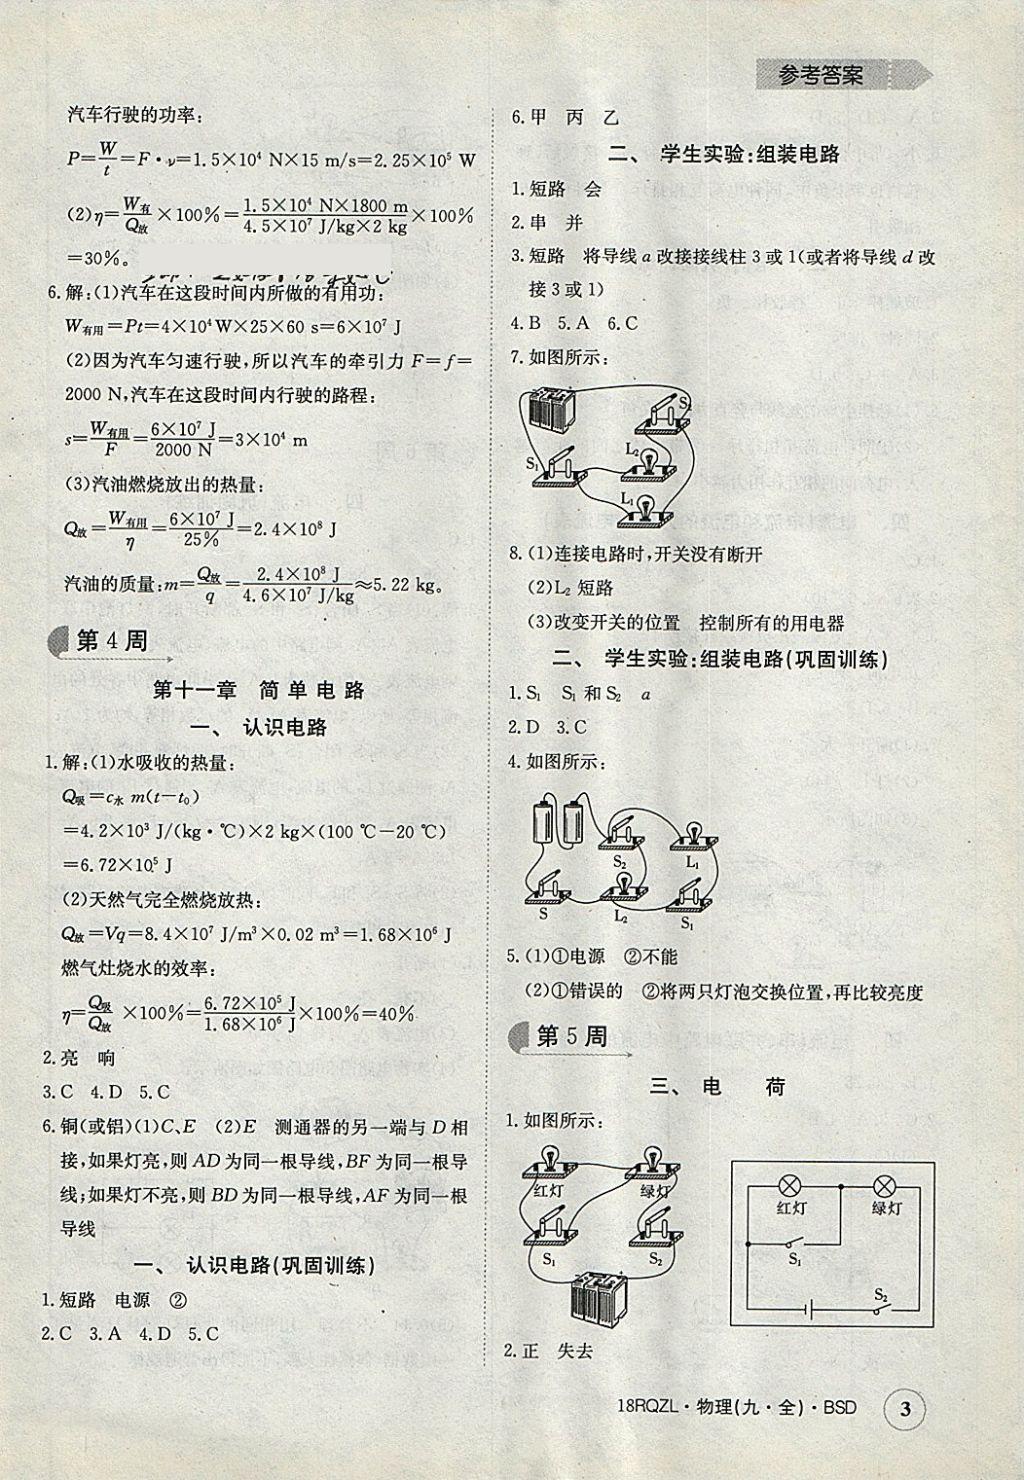 参考答案
汽车行驶的功率:
P=W/t=F·v=1.5×10⁴ N×15 m/s=2.25×10⁵ W
(2)η=W有/Q放×100%=1.5×10⁴ N×1800 m/4.5×10⁷ J/kg×2 kg×100%
=30%。
6.解:(1)汽车在这段时间内所做的有用功:
W有用=Pt=4×10⁴W×25×60 s=6×10⁷ J
(2)因为汽车匀速行驶,所以汽车的牵引力 F=f=
2000 N,汽车在这段时间内行驶的路程:
s=W有用/F=6×10⁷ J/2000 N=3×10⁴ m
(3)汽油燃烧放出的热量:
Q放=W有用/η=6×10⁷ J/25%=2.4×10⁸ J
汽油的质量:m=Q放/q=2.4×10⁸ J/4.6×10⁷ J/kg≈5.22 kg。
第 4 周
第十一章 简单电路
一、 认识电路
1.解:(1)水吸收的热量:
Q吸=c水 m(t−t₀)
=4.2×10³ J/(kg·℃)×2 kg×(100 ℃−20 ℃)
=6.72×10⁵ J
(2)天然气完全燃烧放热:
Q放=Vq=8.4×10⁷ J/m³×0.02 m³=1.68×10⁶ J
燃气灶烧水的效率:
η=Q吸/Q放×100%=6.72×10⁵ J/1.68×10⁶ J×100%=40%
2.亮 响
3.C 4.D 5.C
6.铜(或铝)(1)C、E (2)E 测通器的另一端与 D 相
接,如果灯亮,则 AD 为同一根导线,BF 为同一根导
线;如果灯不亮,则 BD 为同一根导线,AF 为同一根
导线
一、 认识电路(巩固训练)
1.短路 电源 ②
2.C 3.A 4.D 5.C
6.甲 丙 乙
二、 学生实验:组装电路
1.短路 会
2.串 并
3.短路 将导线 a 改接接线柱 3 或 1(或者将导线 d 改
接 3 或 1)
4.B 5.A 6.C
7.如图所示:
S₂
L₂
S₁
L₁
8.(1)连接电路时,开关没有断开
(2)L₂ 短路
(3)改变开关的位置 控制所有的用电器
二、 学生实验:组装电路(巩固训练)
1.S₁ S₁ 和 S₂ a
2.D 3.C
4.如图所示:
S₂ L₁
S L₂ S₁
5.(1)①电源 ②不能
(2)①错误的 ②将两只灯泡交换位置,再比较亮度
第 5 周
三、 电 荷
1.如图所示:
红灯 绿灯
S₁ S₂
红灯 绿灯
S₁
S₂
2.正 失去
18RQZL·物理(九·全)·BSD 3